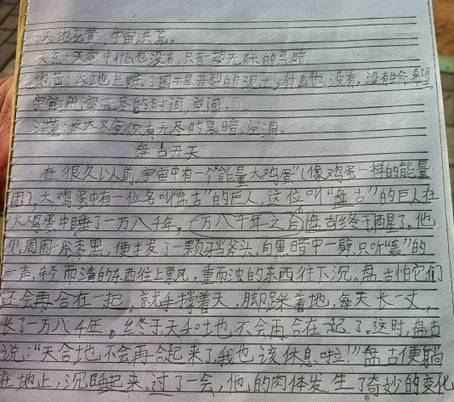 天地玄黄,宇宙洪荒。
天玄:天空中什么也没有,只有无边无际的黑暗
地黄:大地上除了因干旱开裂的泥土,什么也没有,没有生命希望
宇宙:无穷无尽的时间,空间。
洪荒:这大又空,没有无尽的黑暗,空洞。
盘古开天
在很久以前,宇宙中有一个“能量大鸡蛋”(像鸡蛋一样的能量
团),大鸡蛋中有一位名叫“盘古”的巨人,这位叫“盘古”的巨人在
大鸡蛋中睡了一万八千年。一万八千年之后盘古终于醒了。他
见周围一片漆黑,便拔了一颗牙当斧头,向黑暗中一劈,只听“轰”的
一声,轻而清的东西往上飘,重而浊的东西往下沉。盘古怕它们
还会再合在一起,就手撑着天,脚踩着地,每天长一丈,
长了一万八千年。终于天和地也不会再合在一起了。这时,盘古
说:“天合地不会再合起来了,我也该休息啦!”盘古便躺
在地上,沉睡起来。过了一会,他的肉体发生了奇妙的变化